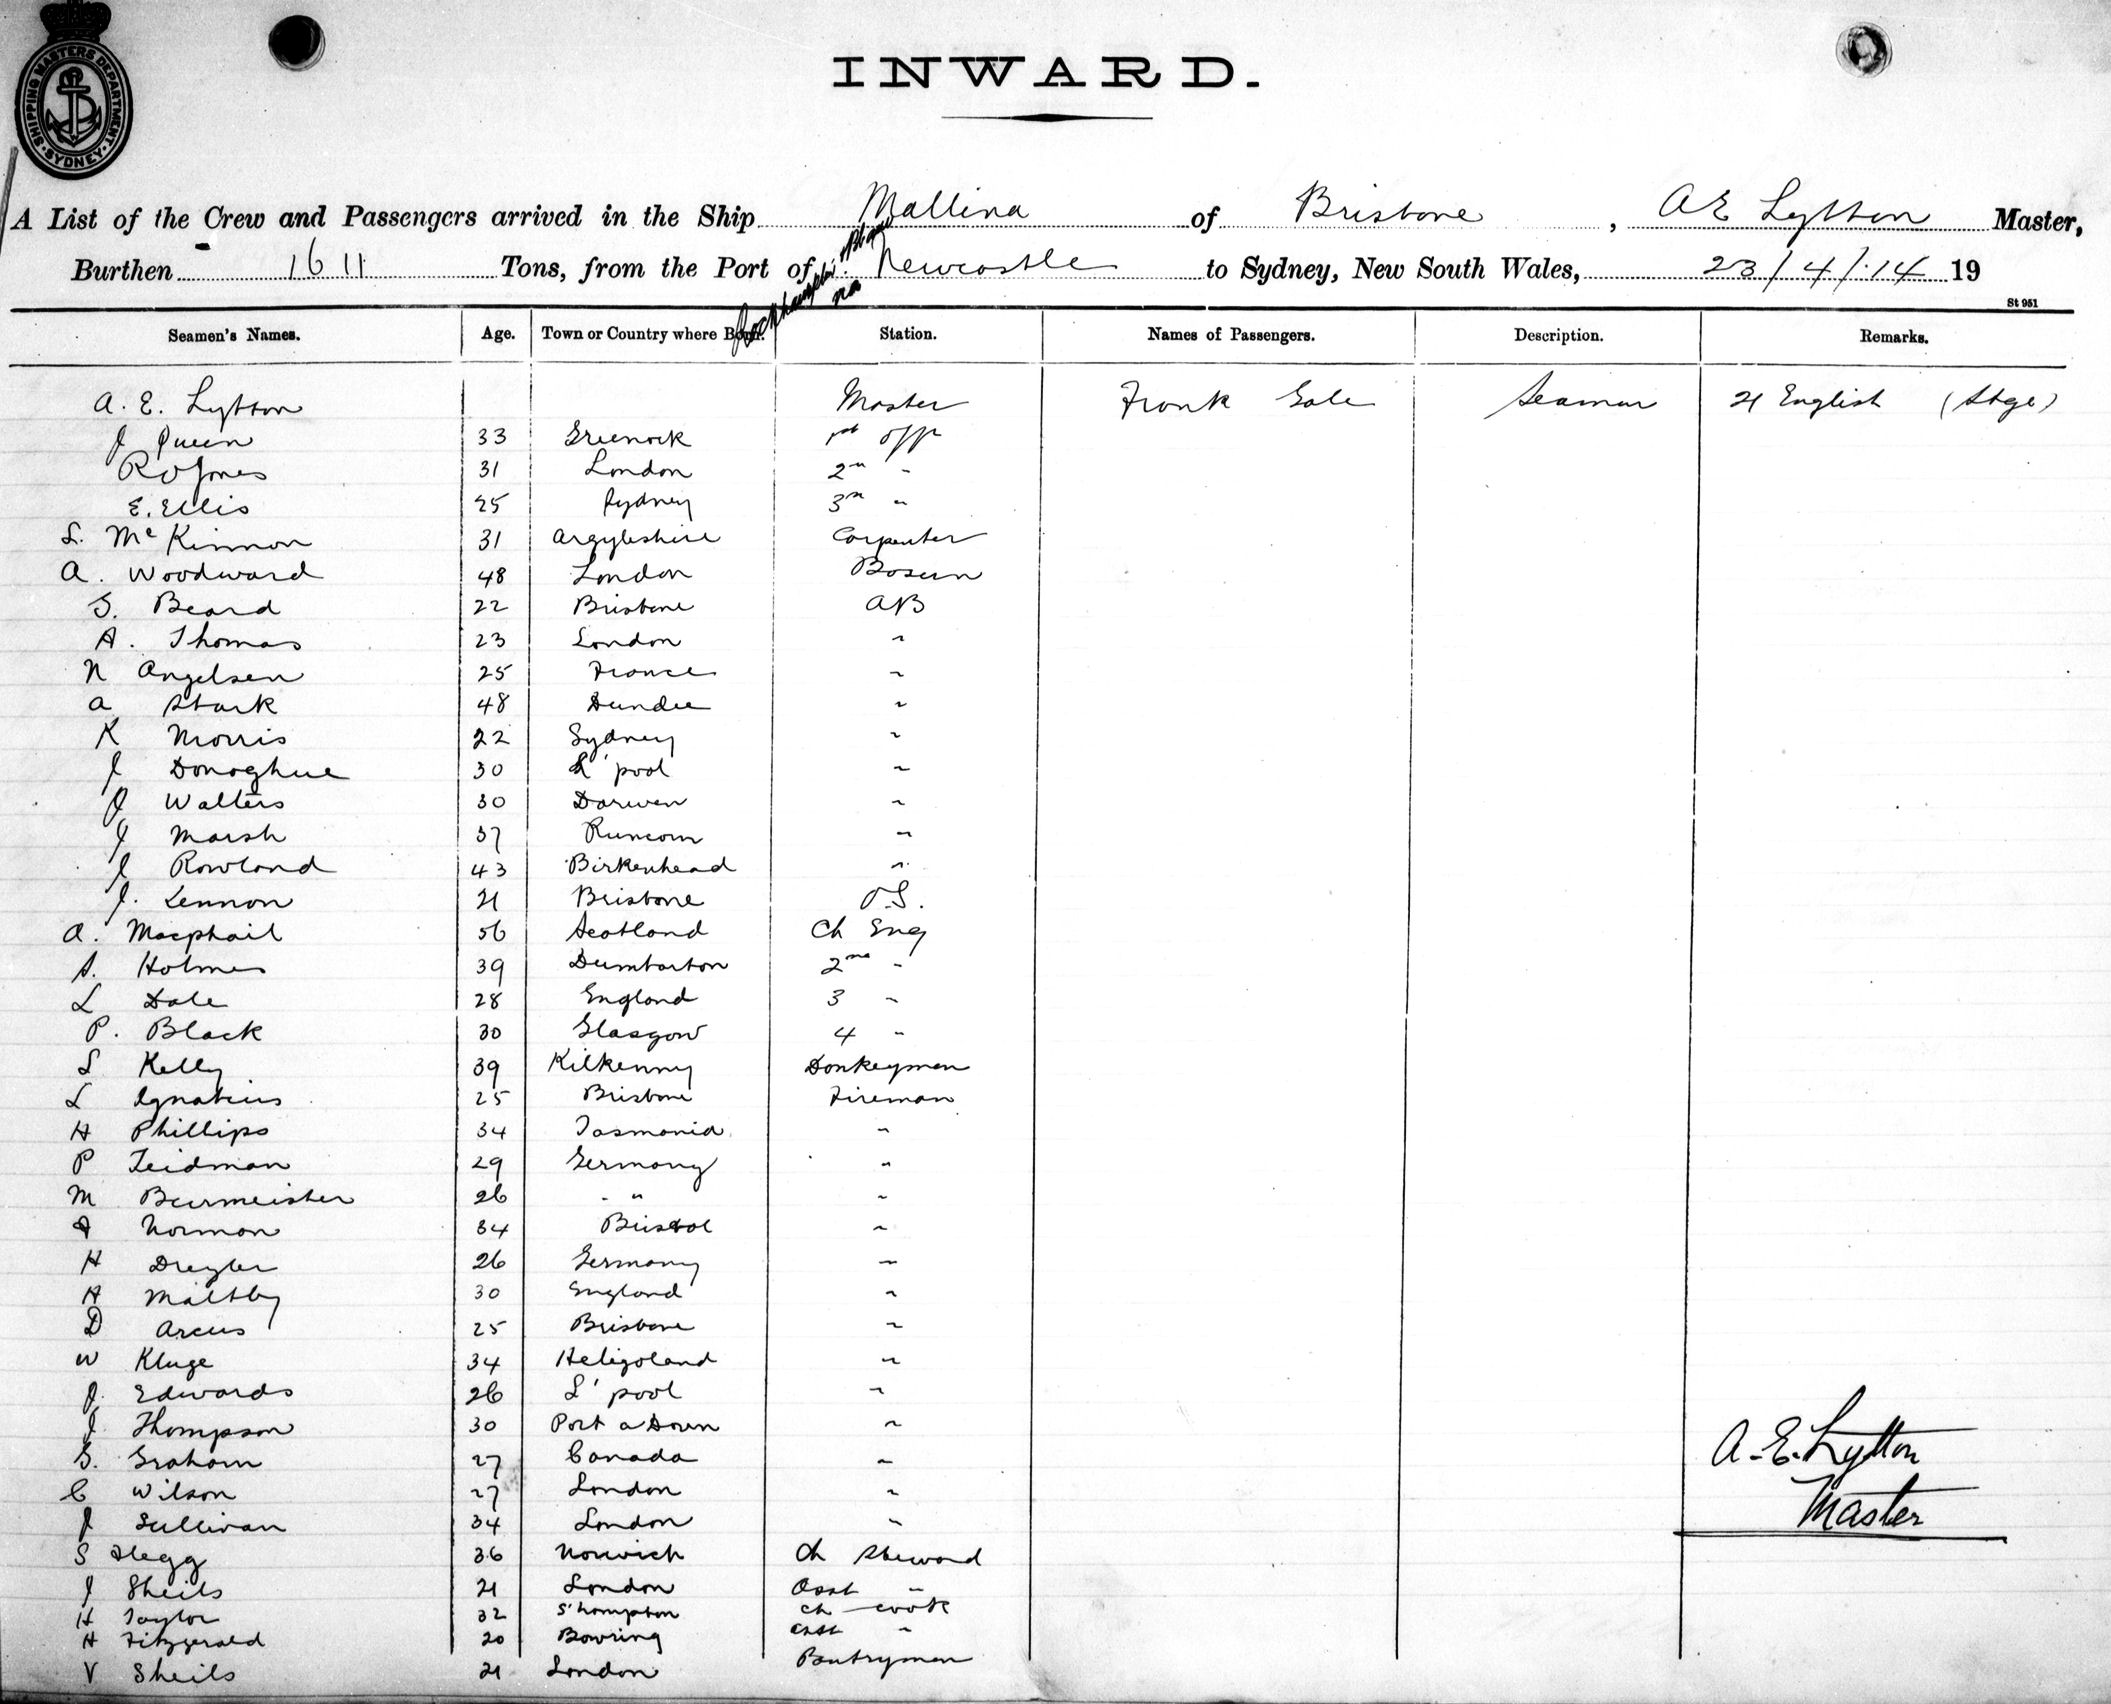 SHIPPING MASTERS DEPARTMENT. SYDNEY.
INWARD.
A List of the Crew and Passengers arrived in the Ship Mallina of Brisbane, A E Lytton Master,
Burthen 1611 Tons, from the Port of Rockhampton via Newcastle to Sydney, New South Wales, 23/4/14 19
St 951
Seamen's Names. Age. Town or Country where Born. Station. Names of Passengers. Description. Remarks.
A. E. Lytton Master Frank Gale Seaman 21 English (Stge)
J Queen 33 Greenock 1st Off
R O Jones 31 London 2n "
E. Ellis 25 Sydney 3rd "
L. McKinnon 31 Argyleshire Carpenter
A. Woodward 48 London Bosun
G. Beard 22 Brisbane AB
A. Thomas 23 London "
N Angelsen 25 France "
A Stark 48 Dundee "
K Morris 22 Sydney "
J Donoghue 30 L'pool "
J Walters 30 Darwen "
J Marsh 37 Runcorn "
J Rowland 43 Birkenhead "
J. Lennon 21 Brisbane O.S.
A. Macphail 56 Scotland Ch Eng
A. Holmes 39 Dumbarton 2nd "
L Dale 28 England 3 "
P. Black 30 Glasgow 4 "
S Kelly 39 Kilkenny Donkeyman
L Ignatius 25 Brisbane Fireman
H Phillips 34 Tasmania "
P Teidman 29 Germany "
M Burmeister 26 " "
Norman 34 Bristol "
H Dreyler 26 Germany "
A Maltby 30 England "
D Arcus 25 Brisbane "
W Kluge 34 Heligoland "
J. Edwards 26 L'pool "
J Thompson 30 Port a Down "
G. Graham 27 Canada "
C Wilson 27 London "
J Sullivan 34 London "
A. E. Lytton
Master
S Flegg 36 Norwich Ch Steward
J Sheils 21 London Asst "
H Taylor 32 S'hampton Ch Cook
H Fitzgerald 20 Bowring Asst "
V Sheils 21 London Pantryman